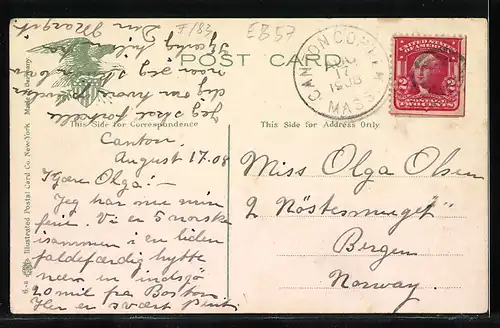 POST CARD
This Side for Correspondence
This Side for Address Only.
#183
EB57
CANTON CORNER
AUG
17
1908
MASS.
UNITED STATES OF AMERICA
2 2
POSTAGE
TWO CENTS
Canton
August 17.08
Kjære Olga! –
Jeg har nu min
ferie. Vi er 5 norske
isammen i en liden
faldefærdig hytte
nær en indsjø
20 mil fra Boston
Her er svært pent
Jeg skal fortælle
dig om hvore
naar jeg
Hjertelig hilsen fra
Din Margit
Miss Olga Olsen
2 Nöstesmuget
Bergen
Norway.
6-a Illustrated Postal Card Co. New-York. Made in Germany.